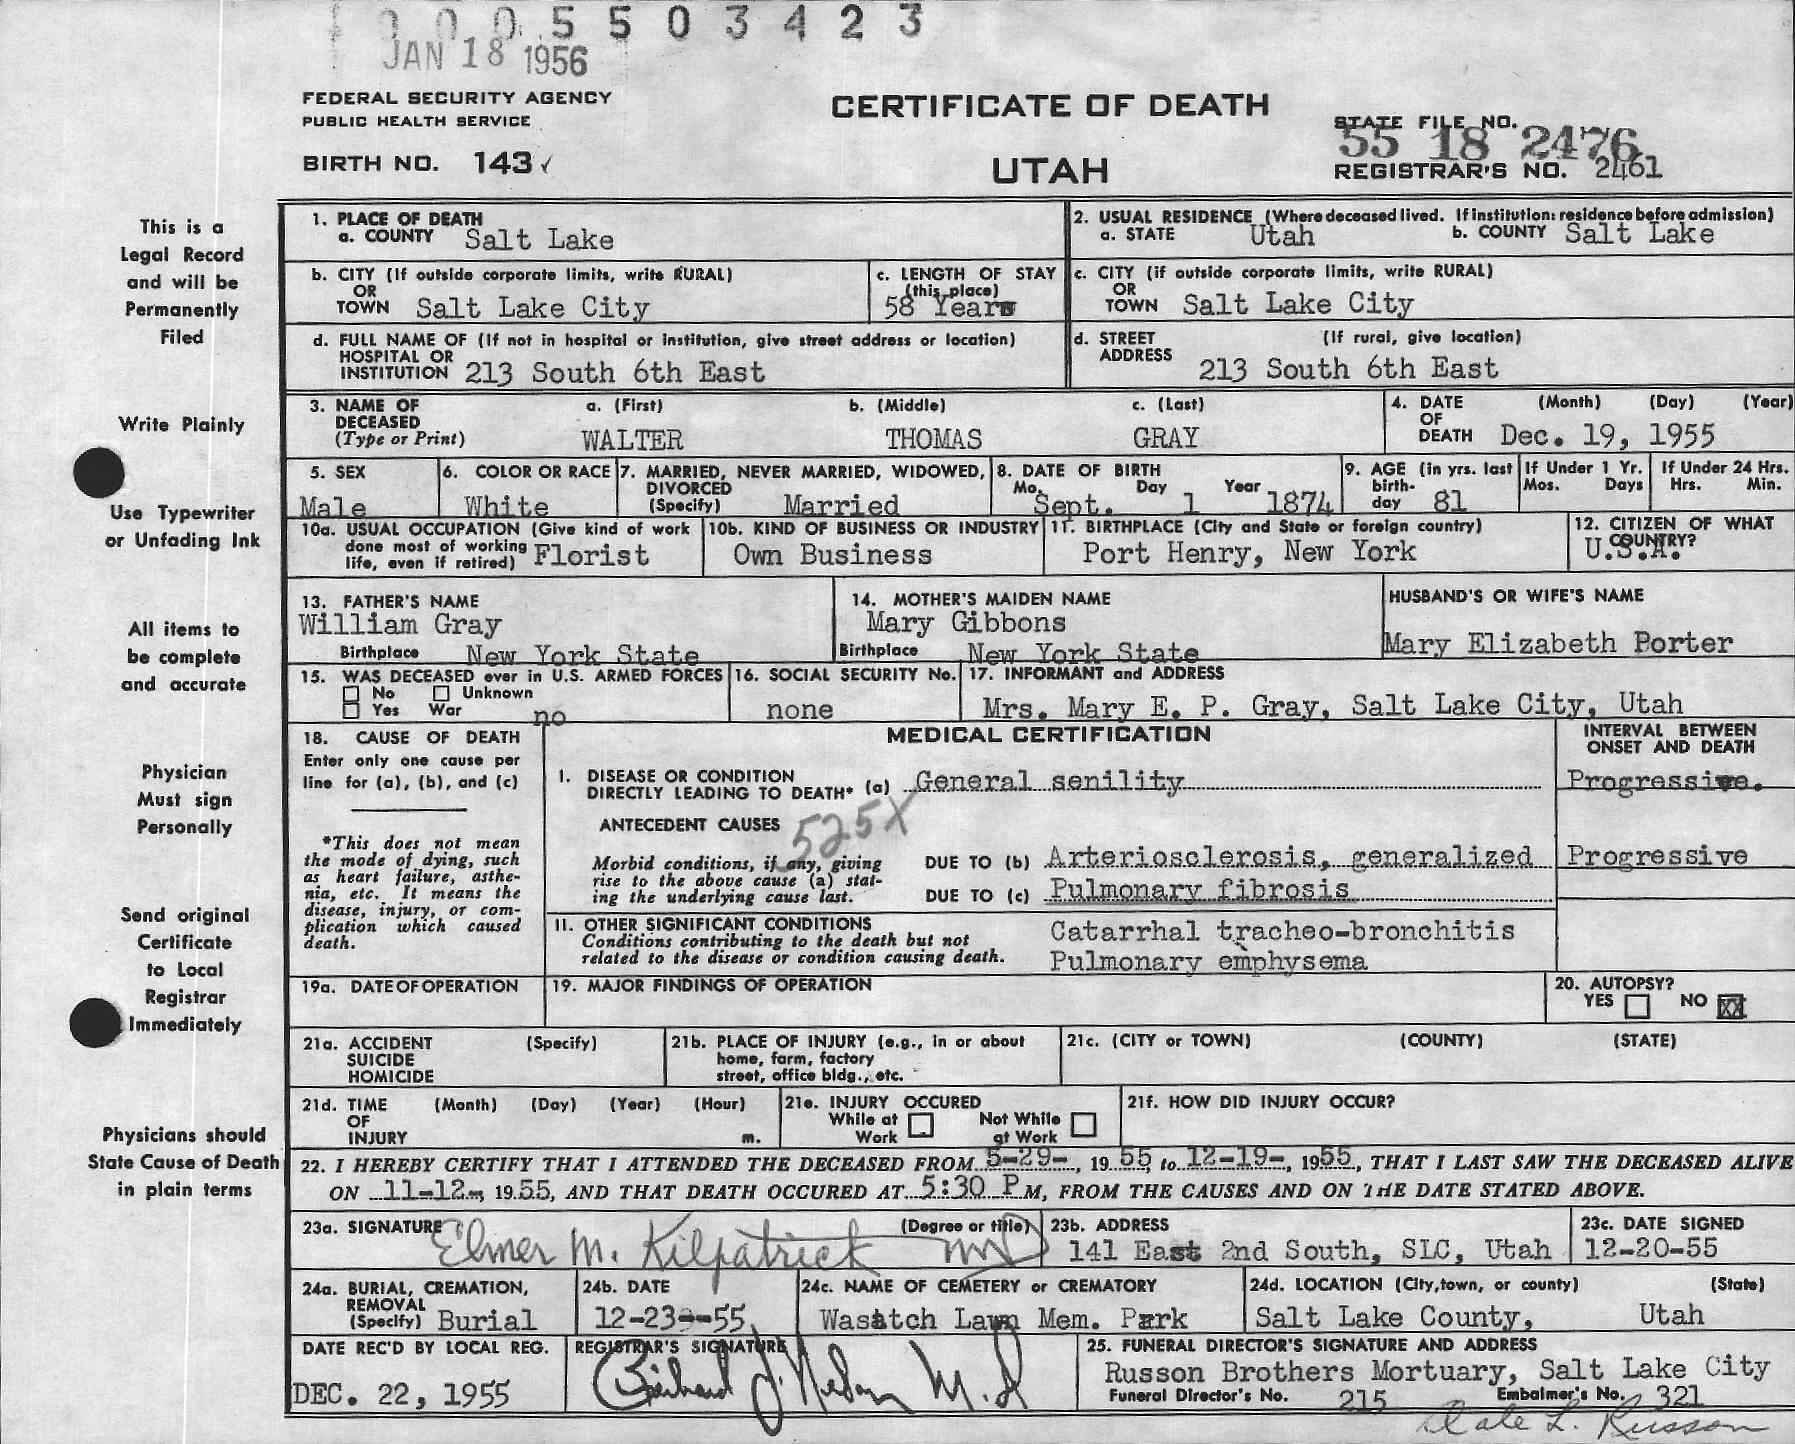 0005503423
JAN 18 1956
FEDERAL SECURITY AGENCY
PUBLIC HEALTH SERVICE
BIRTH NO. 143
CERTIFICATE OF DEATH
UTAH
STATE FILE NO.
55 18 2476
REGISTRAR'S NO. 2461
This is a
Legal Record
and will be
Permanently
Filed
Write Plainly
Use Typewriter
or Unfading Ink
All items to
be complete
and accurate
Physician
Must sign
Personally
Send original
Certificate
to Local
Registrar
Immediately
Physicians should
State Cause of Death
in plain terms
1. PLACE OF DEATH
a. COUNTY Salt Lake
2. USUAL RESIDENCE (Where deceased lived. If institution: residence before admission)
a. STATE Utah b. COUNTY Salt Lake
b. CITY (If outside corporate limits, write RURAL)
OR
TOWN Salt Lake City
c. LENGTH OF STAY
(this place)
58 Years
c. CITY (if outside corporate limits, write RURAL)
OR
TOWN Salt Lake City
d. FULL NAME OF (If not in hospital or institution, give street address or location)
HOSPITAL OR
INSTITUTION 213 South 6th East
d. STREET (If rural, give location)
ADDRESS
213 South 6th East
3. NAME OF a. (First) b. (Middle) c. (Last)
DECEASED
(Type or Print) WALTER THOMAS GRAY
4. DATE (Month) (Day) (Year)
OF
DEATH Dec. 19, 1955
5. SEX
Male
6. COLOR OR RACE
White
7. MARRIED, NEVER MARRIED, WIDOWED,
DIVORCED
(Specify) Married
8. DATE OF BIRTH
Mo. Day Year
Sept. 1 1874
9. AGE (in yrs. last
birth-
day 81
If Under 1 Yr.
Mos. Days
If Under 24 Hrs.
Hrs. Min.
10a. USUAL OCCUPATION (Give kind of work
done most of working
life, even if retired) Florist
10b. KIND OF BUSINESS OR INDUSTRY
Own Business
11. BIRTHPLACE (City and State or foreign country)
Port Henry, New York
12. CITIZEN OF WHAT
COUNTRY?
U.S.A.
13. FATHER'S NAME
William Gray
Birthplace New York State
14. MOTHER'S MAIDEN NAME
Mary Gibbons
Birthplace New York State
HUSBAND'S OR WIFE'S NAME
Mary Elizabeth Porter
15. WAS DECEASED ever in U.S. ARMED FORCES
No Unknown
Yes War no
16. SOCIAL SECURITY No.
none
17. INFORMANT and ADDRESS
Mrs. Mary E. P. Gray, Salt Lake City, Utah
18. CAUSE OF DEATH
Enter only one cause per
line for (a), (b), and (c)
*This does not mean
the mode of dying, such
as heart failure, asthe-
nia, etc. It means the
disease, injury, or com-
plication which caused
death.
MEDICAL CERTIFICATION
INTERVAL BETWEEN
ONSET AND DEATH
I. DISEASE OR CONDITION
DIRECTLY LEADING TO DEATH* (a) General senility
Progressive.
ANTECEDENT CAUSES
525X
Morbid conditions, if any, giving
rise to the above cause (a) stat-
ing the underlying cause last.
DUE TO (b) Arteriosclerosis, generalized
Progressive
DUE TO (c) Pulmonary fibrosis
II. OTHER SIGNIFICANT CONDITIONS
Conditions contributing to the death but not
related to the disease or condition causing death.
Catarrhal tracheo-bronchitis
Pulmonary emphysema
19a. DATE OF OPERATION
19. MAJOR FINDINGS OF OPERATION
20. AUTOPSY?
YES NO XX
21a. ACCIDENT (Specify)
SUICIDE
HOMICIDE
21b. PLACE OF INJURY (e.g., in or about
home, farm, factory
street, office bldg., etc.
21c. (CITY or TOWN) (COUNTY) (STATE)
21d. TIME (Month) (Day) (Year) (Hour)
OF
INJURY m.
21e. INJURY OCCURED
While at Not While
Work at Work
21f. HOW DID INJURY OCCUR?
22. I HEREBY CERTIFY THAT I ATTENDED THE DECEASED FROM 5-29-, 1955, to 12-19-, 1955, THAT I LAST SAW THE DECEASED ALIVE
ON 11-12-, 1955, AND THAT DEATH OCCURED AT 5:30 P M, FROM THE CAUSES AND ON THE DATE STATED ABOVE.
23a. SIGNATURE (Degree or title)
Elmer M. Kilpatrick MD
23b. ADDRESS
141 East 2nd South, SLC, Utah
23c. DATE SIGNED
12-20-55
24a. BURIAL, CREMATION,
REMOVAL
(Specify) Burial
24b. DATE
12-23-55
24c. NAME OF CEMETERY or CREMATORY
Wasatch Lawn Mem. Park
24d. LOCATION (City, town, or county) (State)
Salt Lake County, Utah
DATE REC'D BY LOCAL REG.
DEC. 22, 1955
REGISTRAR'S SIGNATURE
M.D
25. FUNERAL DIRECTOR'S SIGNATURE AND ADDRESS
Russon Brothers Mortuary, Salt Lake City
Funeral Director's No. 215 Embalmer's No. 321
Dale L. Russon